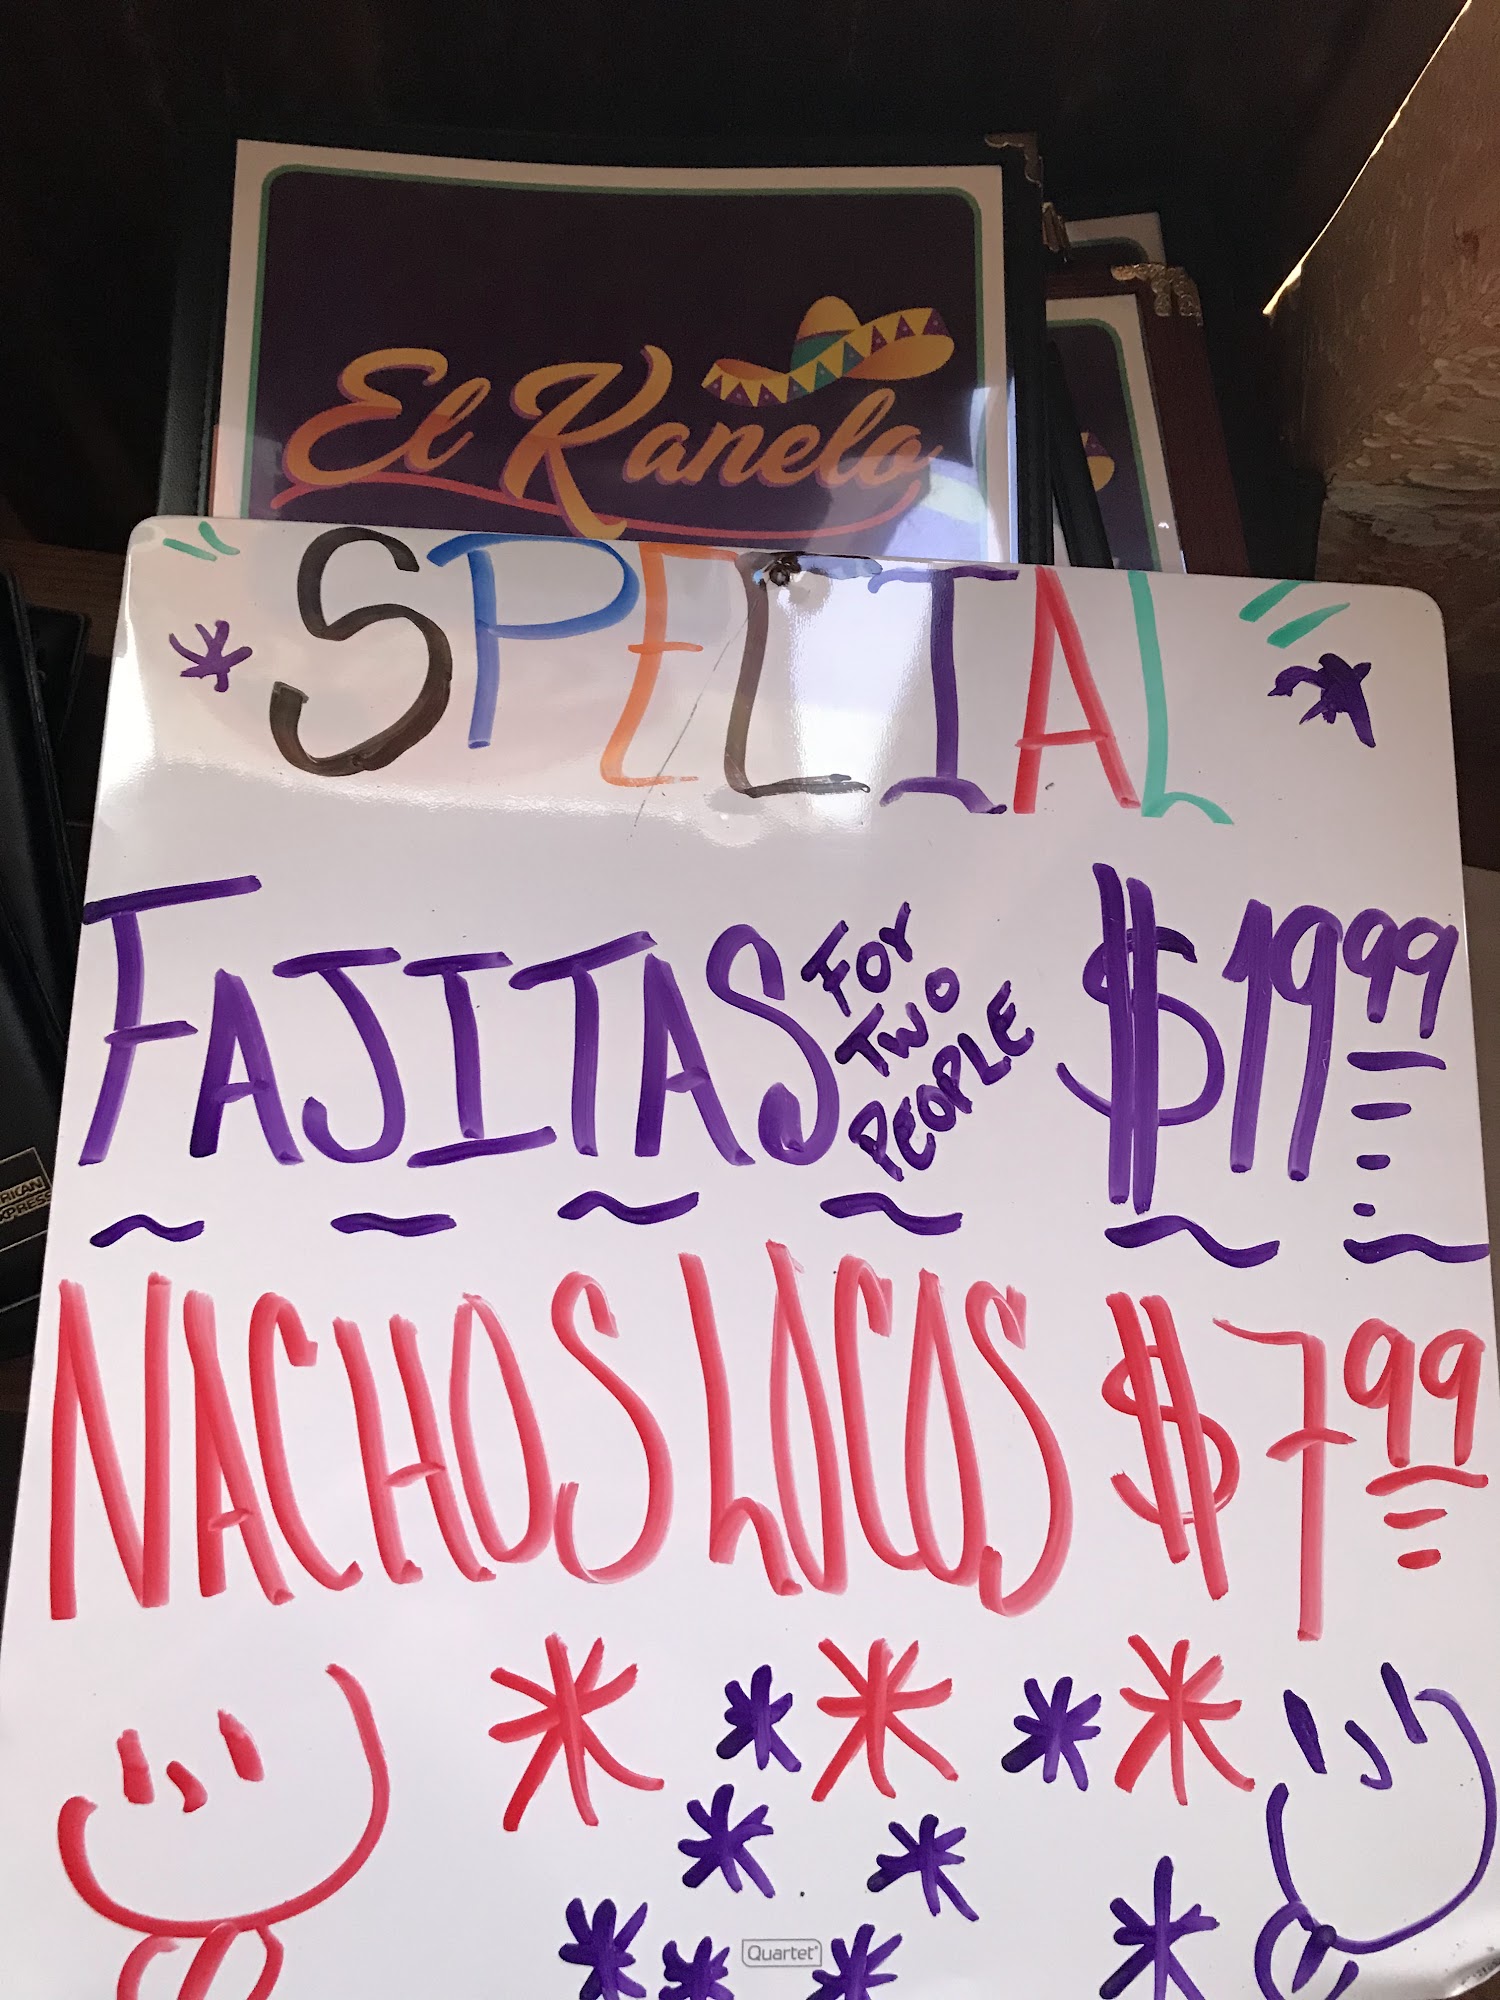 El Kanelo
SPECIAL
FAJITAS FOR TWO PEOPLE $19.99
NACHOS LOCOS $7.99
Quartet
AMERICAN
EXPRESS